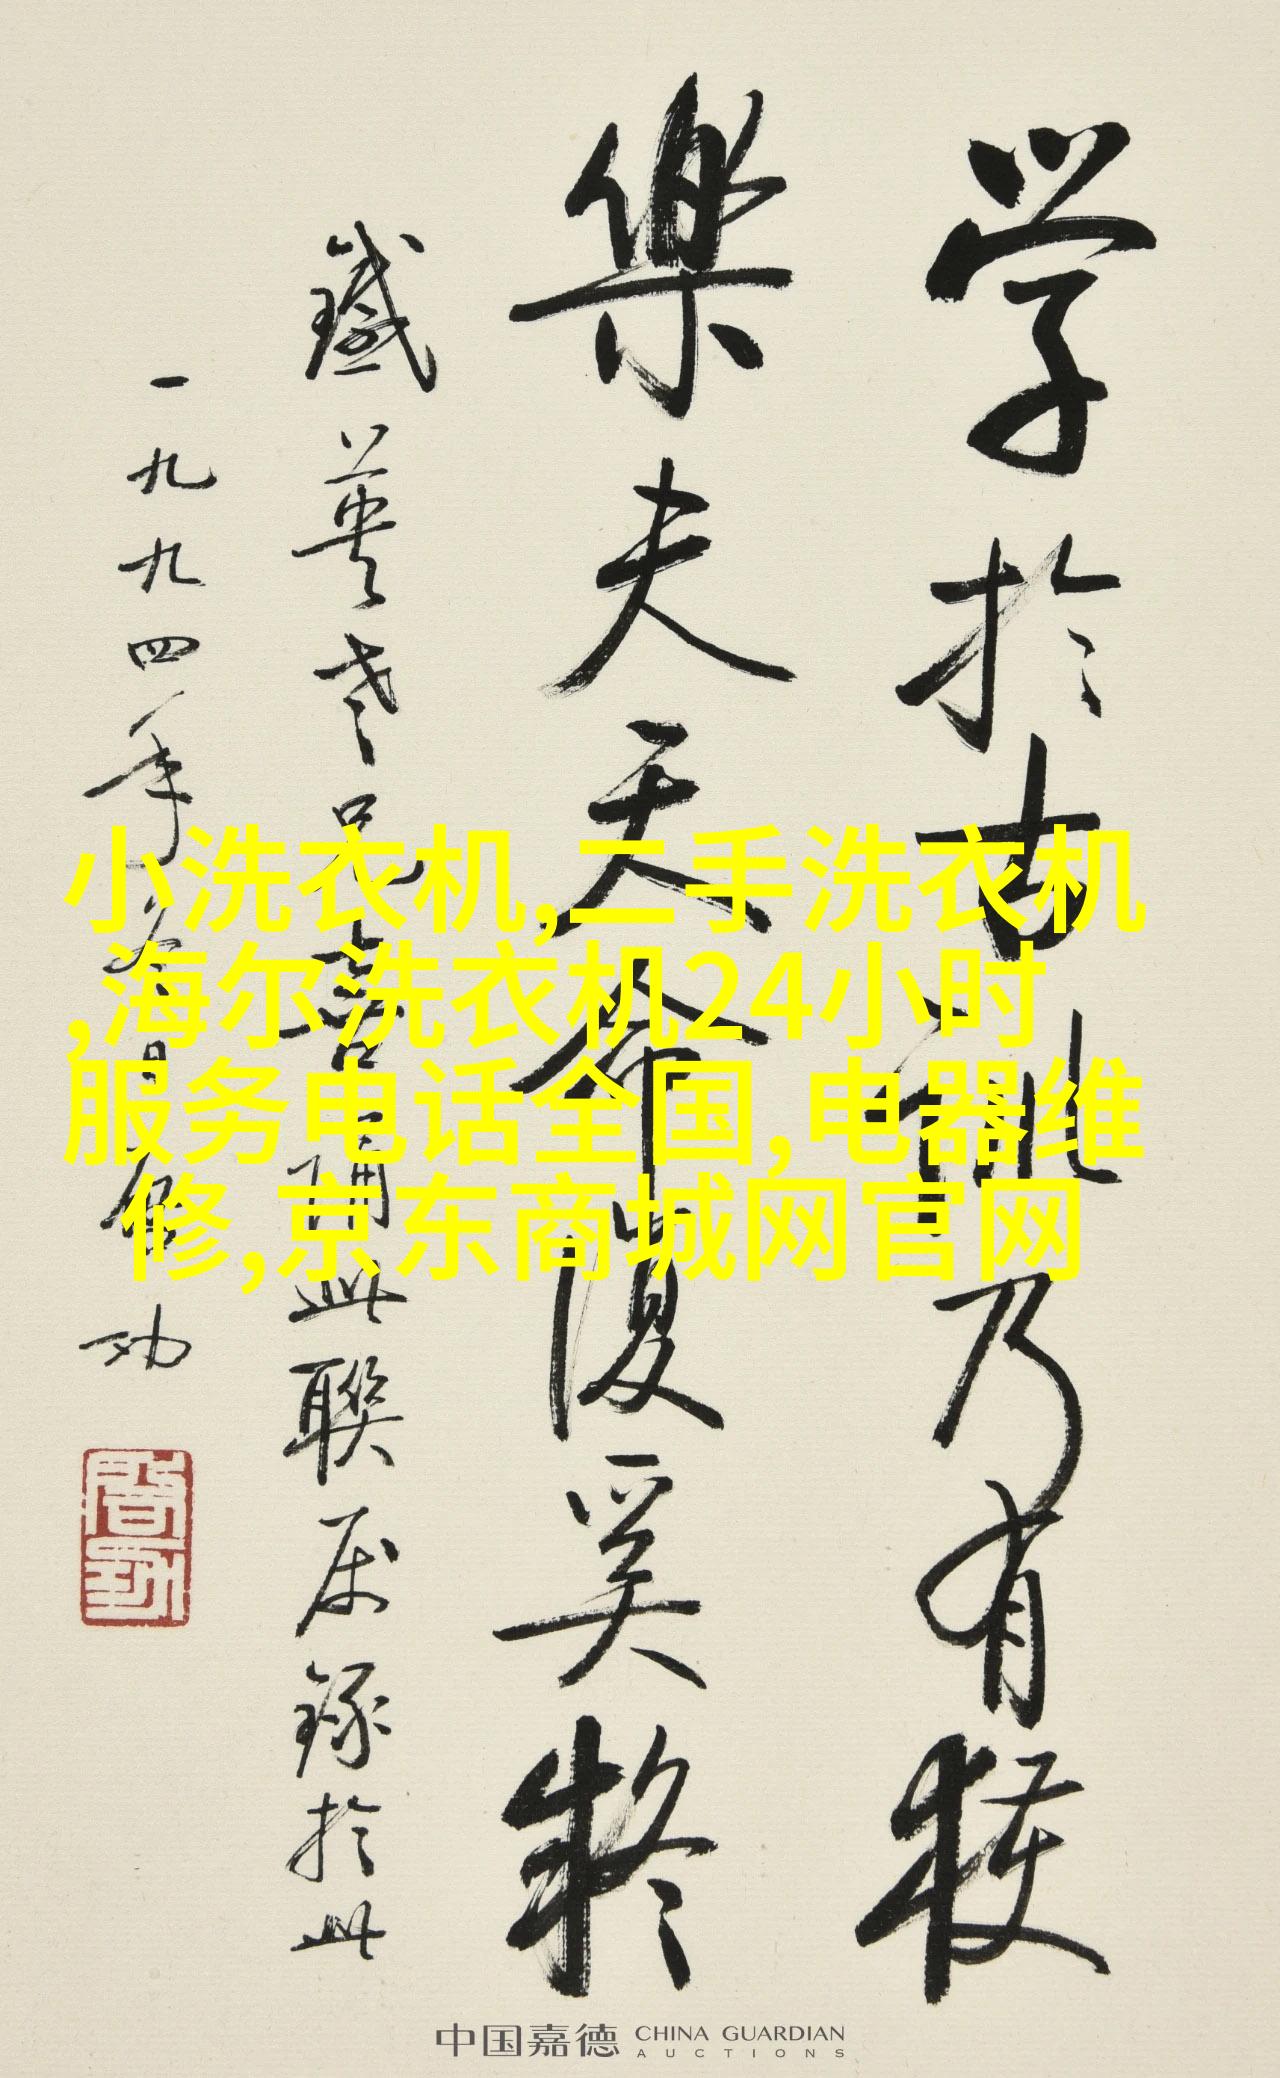 学於古訓乃有獲
樂夫天命復奚疑
鐵英老兄喜誦此聯属錄於此
一九九四年春日启功
小洗衣机,二手洗衣机
,海尔洗衣机24小时
服务电话全国,电器维
修,京东商城网官网
中国嘉德 CHINA GUARDIAN
AUCTIONS